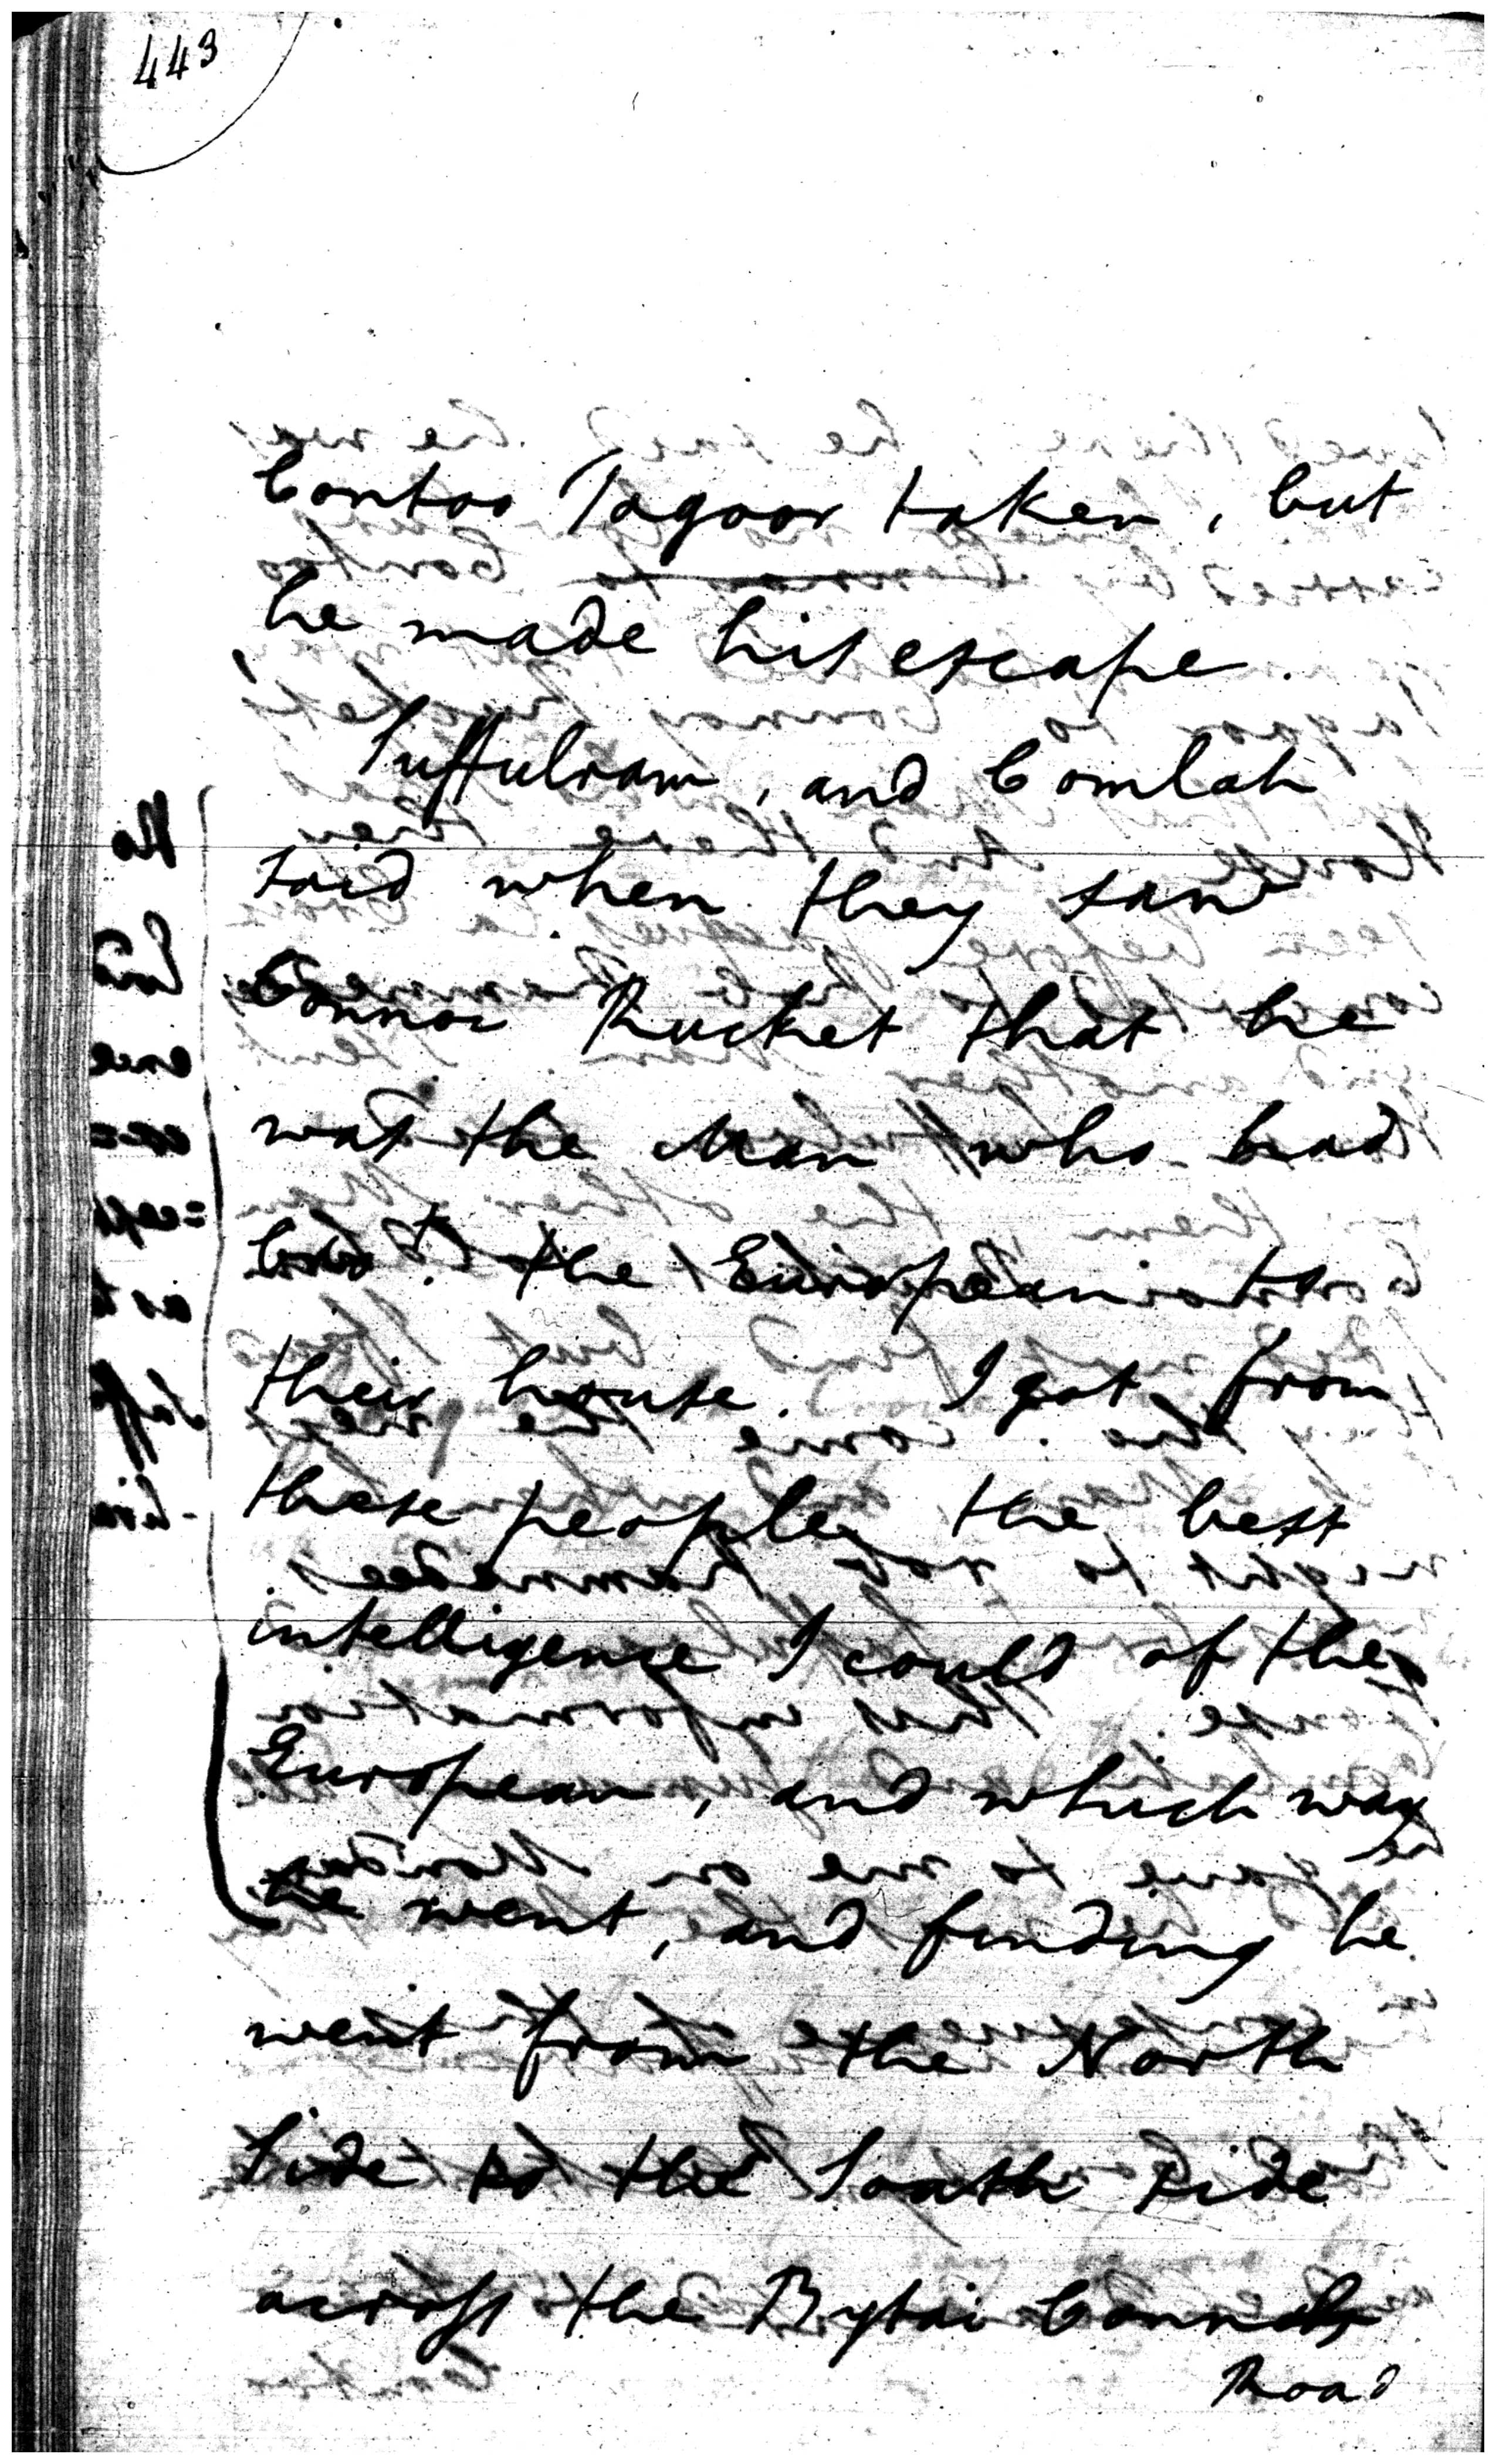 443
Contoo Tagoor taken, but
he made his escape.
Suffulram, and Comlah
said when they saw
Connoi Rucket that he
was the Man who had
bro.t the European to
their house. I got from
these people, the best
intelligence I could of the
European, and which way
he went, and finding he
went from the North
Side to the South side
across the Bytai Connah
Road